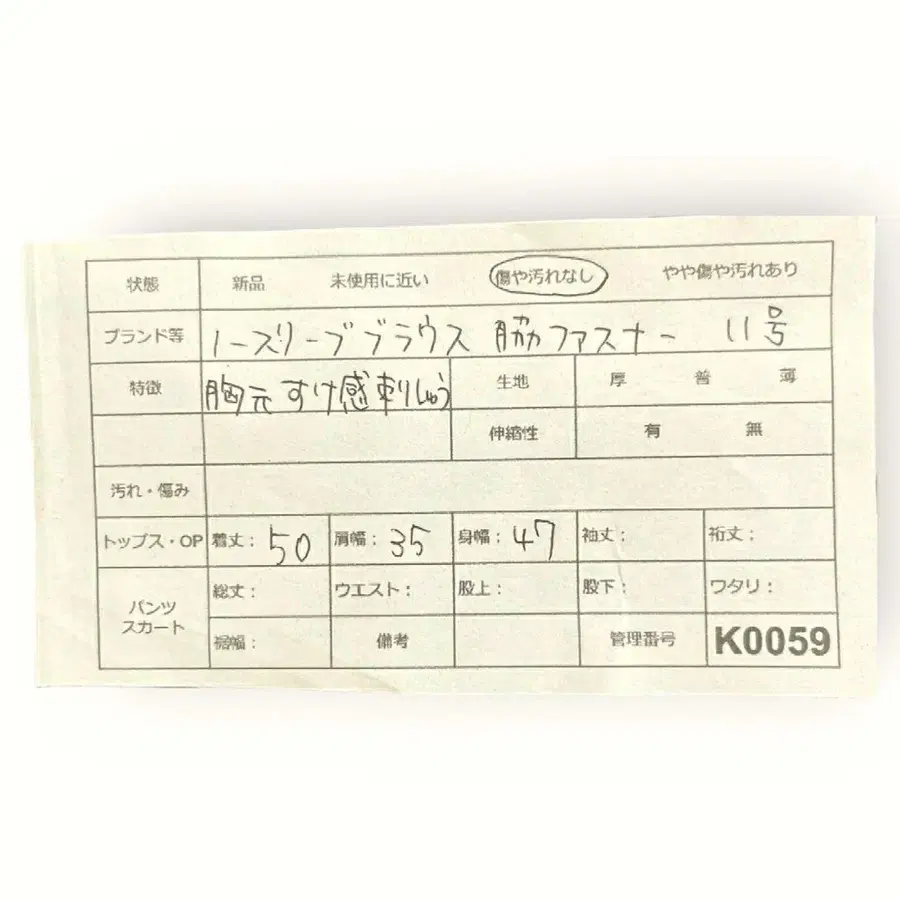 状態 新品 未使用に近い 傷や汚れなし やや傷や汚れあり
ブランド等 ノースリーブブラウス 脇ファスナー 11号
特徴 胸元すけ感刺しゅう 生地 厚 普 薄
伸縮性 有 無
汚れ・傷み
トップス・OP 着丈: 50 肩幅: 35 身幅: 47 袖丈: 裄丈:
パンツ スカート 総丈: ウエスト: 股上: 股下: ワタリ:
裾幅: 備考 管理番号 K0059